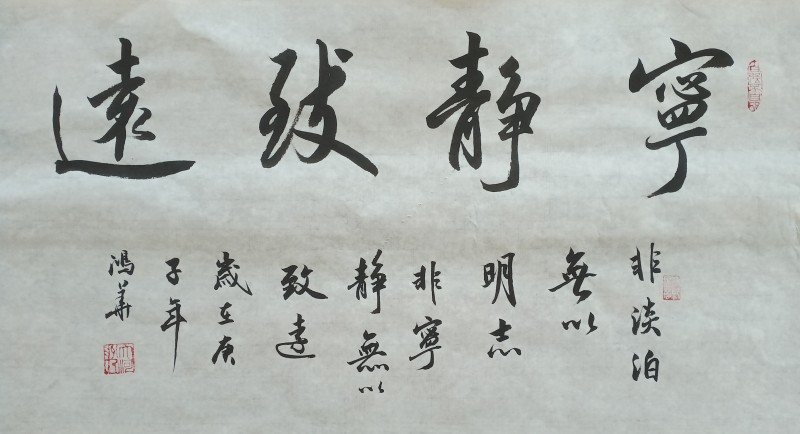 寧靜致遠
非淡泊
無以
明志
非寧
靜無以
致遠
歲在庚
子年
鴻華